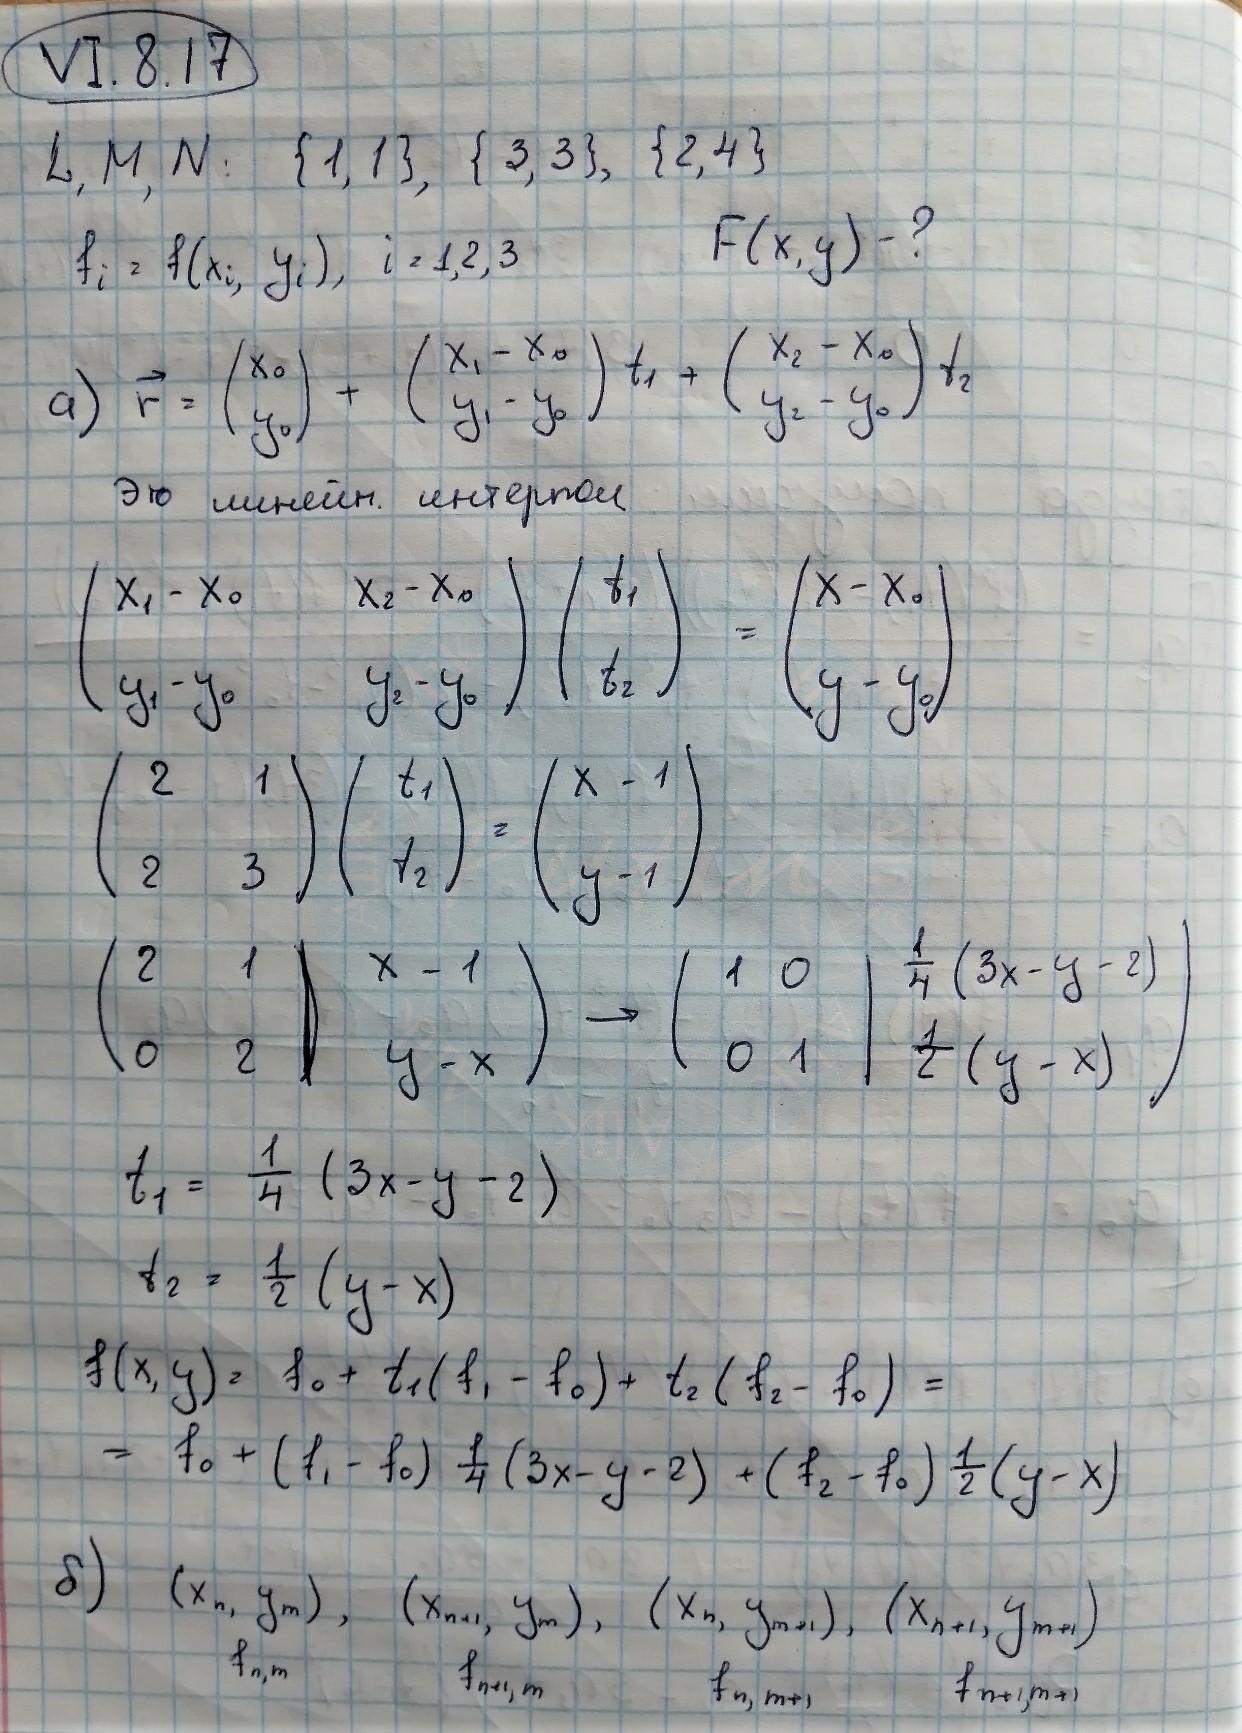 VI.8.17
L, M, N: {1,1}, {3,3}, {2,4}
fᵢ = f(xᵢ, yᵢ), i = 1,2,3 F(x,y) - ?
а) r⃗ = (x₀ y₀) + (x₁ - x₀ y₁ - y₀) t₁ + (x₂ - x₀ y₂ - y₀) t₂
Это линейн. интерпол
(x₁ - x₀ x₂ - x₀) (t₁) = (x - x₀)
(y₁ - y₀ y₂ - y₀) (t₂) (y - y₀)
(2 1) (t₁) = (x - 1)
(2 3) (t₂) (y - 1)
(2 1 | x - 1) → (1 0 | 1/4 (3x - y - 2))
(0 2 | y - x) (0 1 | 1/2 (y - x))
t₁ = 1/4 (3x - y - 2)
t₂ = 1/2 (y - x)
f(x,y) = f₀ + t₁(f₁ - f₀) + t₂(f₂ - f₀) =
= f₀ + (f₁ - f₀) 1/4 (3x - y - 2) + (f₂ - f₀) 1/2 (y - x)
б) (xₙ, yₘ), (xₙ₊₁, yₘ), (xₙ, yₘ₊₁), (xₙ₊₁, yₘ₊₁)
fₙ,ₘ fₙ₊₁,ₘ fₙ,ₘ₊₁ fₙ₊₁,ₘ₊₁